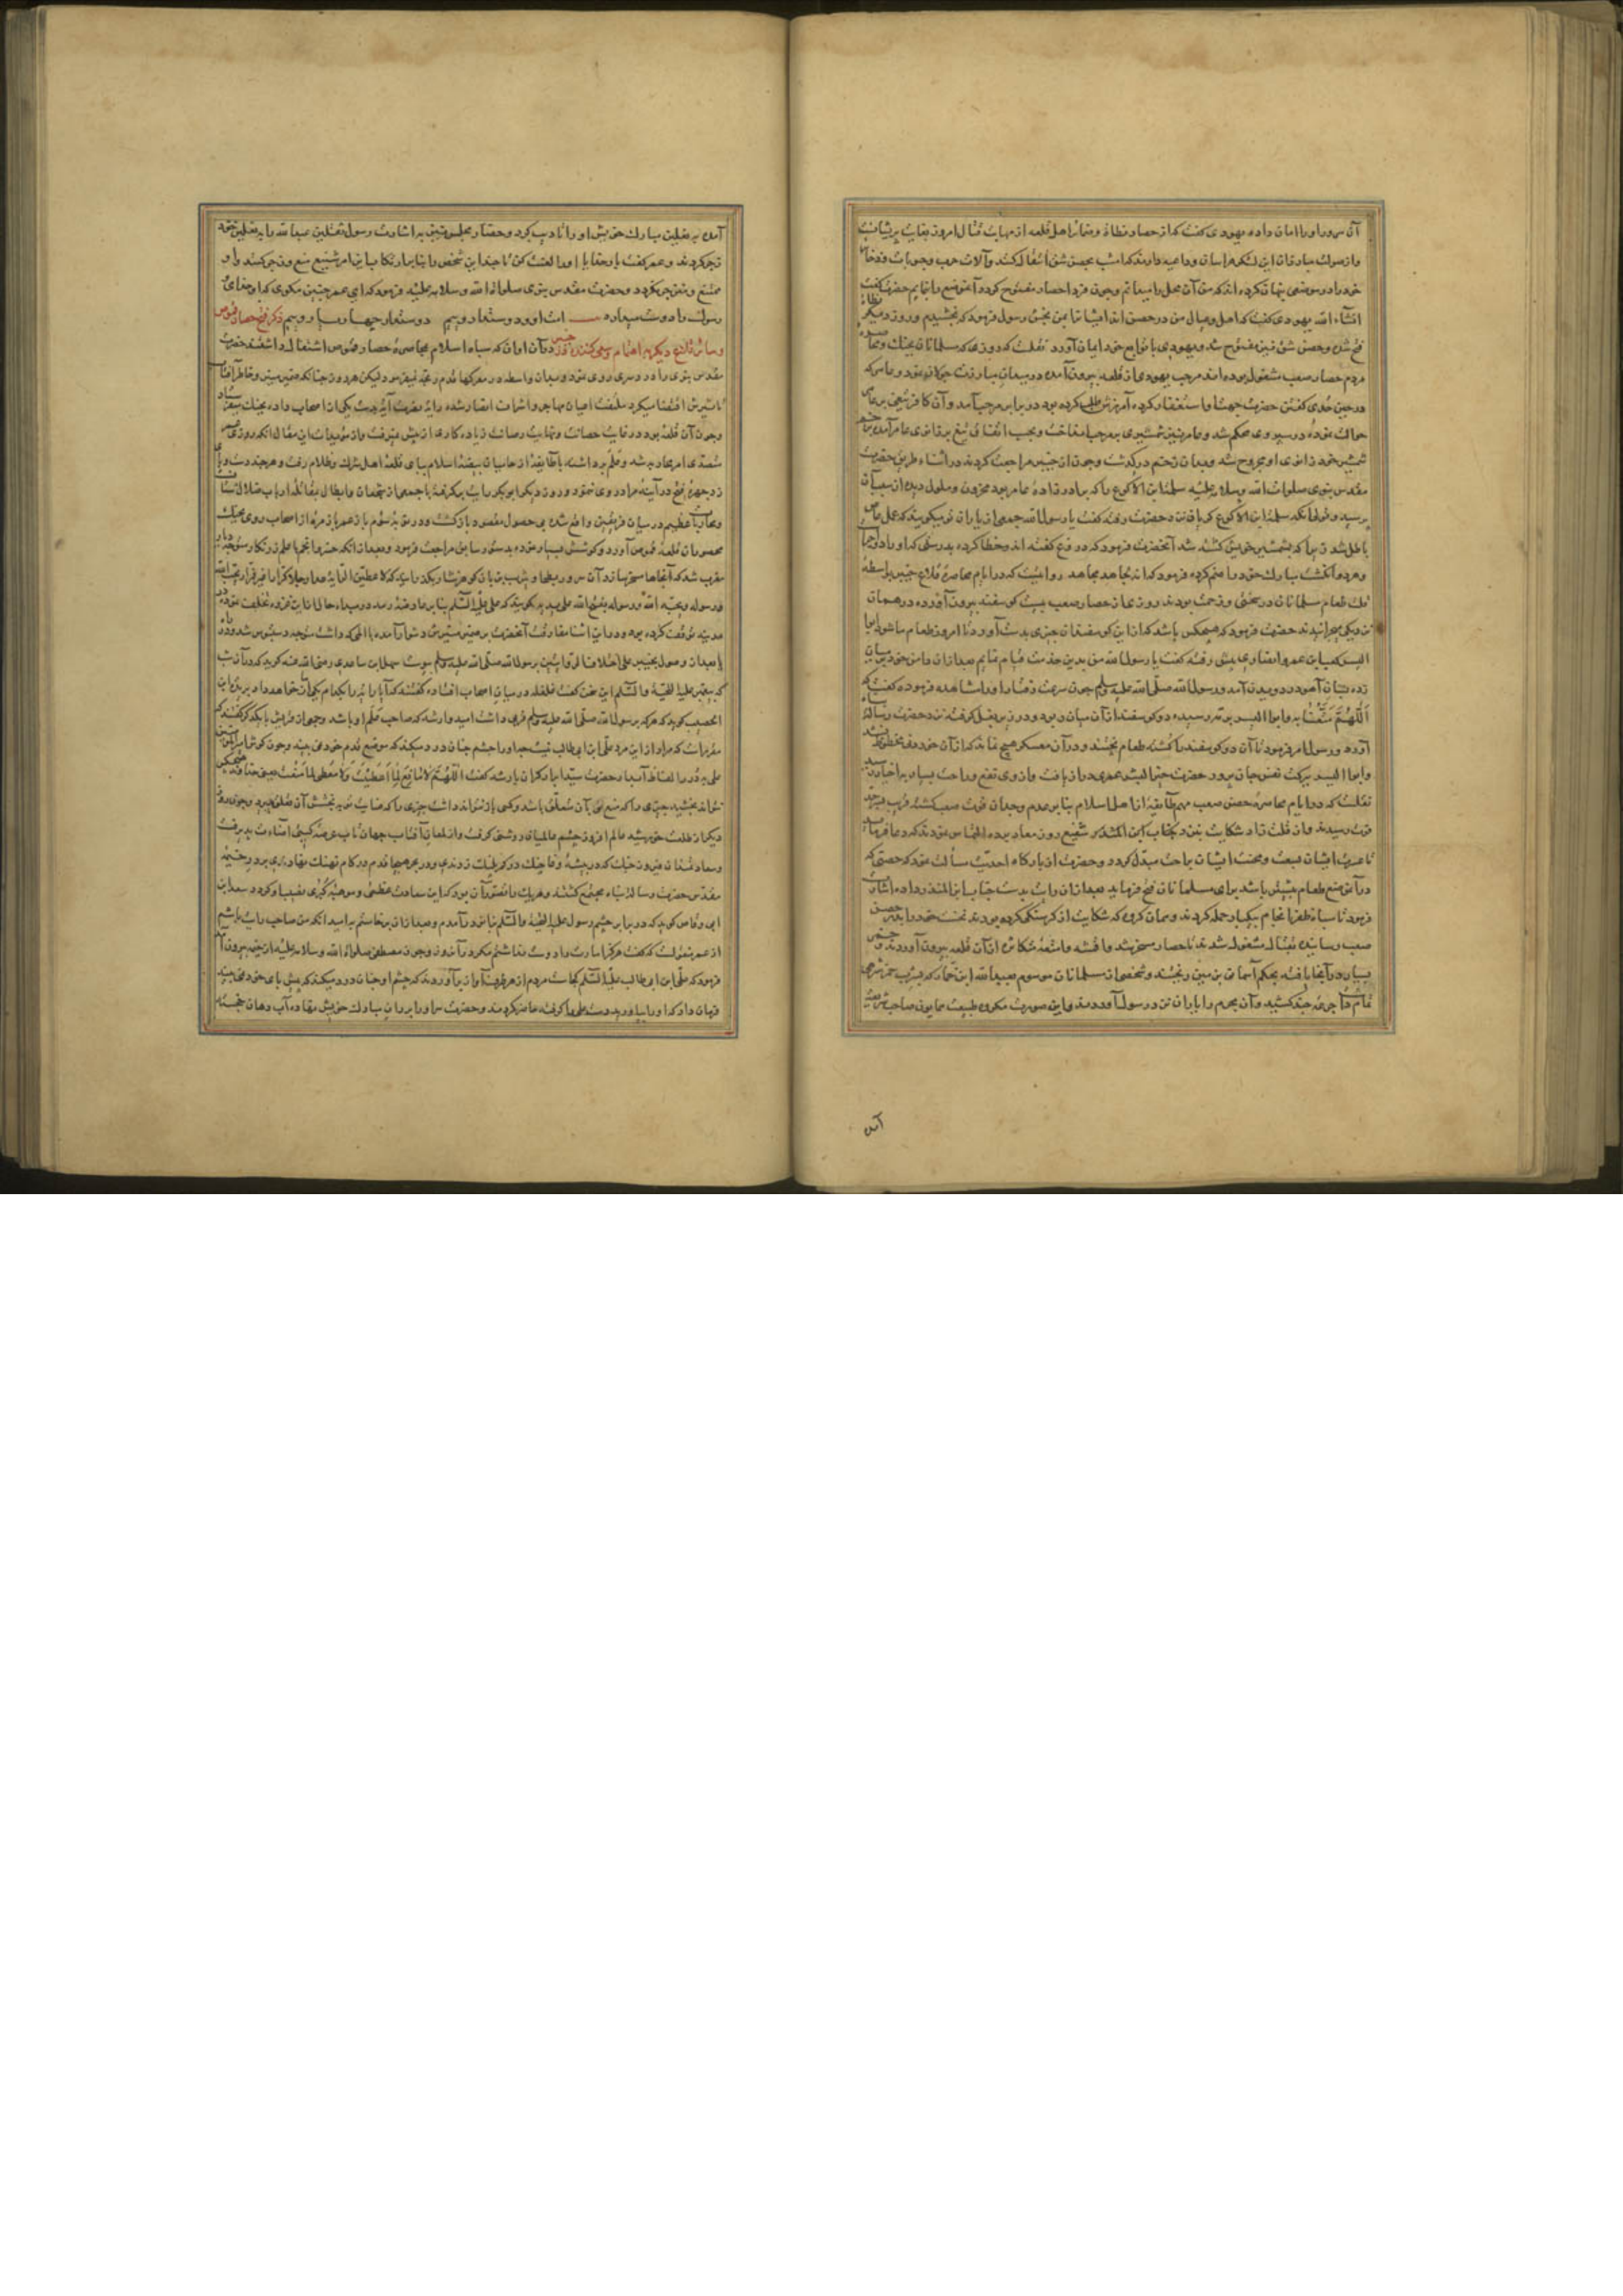 آن سرور او را امان داده یهودی گفت که از حصار نطاة و ضمائر اهل قلعه از مهابت قتال امروز بغایت پریشانست
و از صولت مبارزان این لشکر هراسان و داعیه دارند که امشب بحصن شق انتقال کنند و آلات حرب و حبوبات و ذخایر
خود را در موضعی پنهان کرده اند که من آن محل را میدانم و چون فردا حصار مفتوح گردد آنموضع را نمایم حضرت گفت
انشاء الله یهودی گفت که اهل و عیال من در حصن اند ایشانرا بمن بخش رسول فرمود که بخشیدم و روز دیگر نطاة
فتح شده و حصن شق نیز مفتوح شد و یهودی با توابع خود ایمان آورد نقلست که روزی که مسلمانان بجنگ و محاصره
مردم حصار صعب مشغول بوده اند مرحب یهودی از قلعه بیرون آمده در میدان مبارزت جولان نمود و عامر که
در حین حدی گفتن حضرت جهت او استغفار کرده آمرزش طلب کرده بود در برابر مرحب آمد و آن کافر تیغی بر عامر
حوالت نموده در سپر وی محکم شد و عامر نیز شمشیری بر مرحب انداخت و بحسب اتفاق تیغ بر زانوی عامر آمده
شمشیر خود زانوی او مجروح شد و بدان زخم درگذشت و چون از خیبر مراجعت کردند در اثناء طریق حضرت
مقدس نبوی صلوات الله و سلامه علیه سلمة ابن الاکوع را که برادرزادهٔ عامر بود محزون و ملول دیده از سبب آن
پرسید و قولی آنکه سلمة ابن الاکوع گریان نزد حضرت رفته گفت یا رسول الله جمعی از یاران تو میگویند که عمل عامر
باطل شد زیرا که بشمشیر خویش کشته شد آنحضرت فرمود که دروغ گفته اند و خطا کرده بدرستی که او را دو اجر است
و هر دو انگشت مبارک خود را ضم کرده فرمود که انه لجاهد مجاهد روایتست که در ایام محاصرهٔ قلاع خیبر بواسطهٔ
قلت طعام مسلمانان در سختی و زحمت بودند روزی از حصار صعب بیست گوسفند بیرون آورده در همان
نزدیکی میچرانیدند حضرت فرمود که هیچکس باشد که از این گوسفندان چیزی بدست آورد تا امروز طعام ما شود ابو
الیسر کعب ابن عمرو انصاری پیش رفته گفت یا رسول الله من بدین خدمت قیام نمایم بعد از آن دامن خود بر میان
زده بسان آهو در دویدن آمد و رسول الله صلّی الله علیه وسلم چون سرعت رفتار او را مشاهده فرموده گفت که
اَللّهُمَّ مَتِّعْنَا بِه و ابو الیسر برمه رسیده دو گوسفند از آن میان ربود و در زیر بغل گرفته نزد حضرت رسالت
آورد و رسول امر فرمود تا آن دو گوسفند را کشته طعام پختند و در آن معسکر هیچ نماند که از آن خود محظوظ نشد
و ابو الیسر ببرکت نفس جان پرور حضرت خیر البشر عمری دراز یافت و از وی تمتع و راحت بسیار بر اخیار رسید
نقلست که در ایام محاصرهٔ حصن صعب مهم طایفهٔ از اهل اسلام بنابر عدم وجدان قوت صعب گشته قریب بهلاکت
رسیدند و از قلت زاد شکایت نزد جناب ابن المنذر شفیع روز معاد برده التماس نمودند که دعا فرماید
تا عسرت ایشان بیسر و محنت ایشان براحت مبدّل گردد و حضرت از بارگاه احدیت مسألت نمود که حصنی که
در آن منبع طعام بیش باشد برای مسلمانان فتح فرماید بعد از آن رایت بدست حباب ابن المنذر داده اشارت
فرمود تا سپاه ظفر انجام بیکبار حمله کردند و همان گروه که شکایت از گرسنگی کرده بودند نخست خود را بدر حصن
صعب رسانیده بقتال مشغول شدند تا حصار مسخر شد و اقمشه و امتعهٔ متکاثره از آن قلعه بیرون آوردند و خمر
بسیار در آنجا یافته بحکم آسمانی بر زمین ریختند و شخصی از مسلمانان موسوم بعبد الله ابن خمار که بشرب خمر شرهی
تمام داشت جرعهٔ چند کشید و آن مجرم را یاران نزد رسول آوردند و این صورت مکروه طبیعت همایون صاحب شریعت
آمده
آمده به نعلین مبارک خویش او را تادیب کرد و حضار مجلس نیز به اشارت رسول ثقلین عبد الله را به نعلین خود
زجر کردند و عمر گفت بار خدایا او را لعنت کن تا چند این شخص را بنابر ارتکاب این امر شنیع منع و زجر کنند و او
ممتنع و منزجر نگردد و حضرت مقدس نبوی صلوات الله و سلامه علیه فرمود که ای عمر چنین مگوی که او خدای
رسول را دوست میدارد بیت است او ود دوستدار و بیم دوستدار چهار یار و بیم ذکر فتح حصار قموص
و سائر قلاع دیگر به اهتمام و سعی کننده در خیبر در آن اوان که سپاه اسلام بمحاصرهٔ حصار قموص اشتغال داشتند حضرت
مقدس نبوی را درد سری روی نمود و بدان واسطه در معرکها قدم رنجه نمیفرمود لیکن هر روز چنانکه ضمیر منیر و خاطر آفتاب
تاثیرش اقتضا میکرد سلیقت اعیان مهاجر و اشراف انصار شده رایة نصرت آیة بدست یکی از اصحاب داده بجنگ میفرستاد
و چون آن قلعه بود در غایت حصانت و نهایت رصانت زیاده کاری از پیش نمیرفت و از مؤیدات این مقال آنکه روزی عمر
متصدی امر محاربه شد و علم برداشته با طایفهٔ از حامیان بیضهٔ اسلام بپای قلعهٔ اهل شرک و ظلام رفت و هرچند دست و پای
زد چهرهٔ فتح در آینهٔ مراد روی ننمود و روز دیگر ابوبکر رایت برگرفته با جمعی از شجعان و ابطال بمقاتلهٔ ارباب ضلال شتافت
و محاربات عظیم در میان فریقین واقع شده بی حصول مقصود بازگشت و در روز سوم باز عمر بار مرة از اصحاب روی بجنگ
محصوران قلعهٔ قموص آورد و کوشش بسیار نموده بدستور سابق مراجعت فرمود و بعد از آنکه حضرت انجم باعلم زرنگار متوجه دیار
مغرب شد که آنجا هارا مسخر سازد آن سرور بطحا و یثرب بر زبان گوهر نثار گذرانید که لاعطین الرایة غدا رجلا کرارا غیر فرار یحب الله
و رسوله و یحبه الله و رسوله یفتح الله علی یدیه گویند که علی علیه السّلام بنابر عارضهٔ رمد در مبداء حال از این غزوه تخلف نموده در
مدینه توقف کرده بود و در این اثنا مفارقت آنحضرت بر ضمیر منیرش دشوار آمده با المی که داشت متوجه دستبوس شد و در راه
یا بعد از وصول بخیبر علی اختلاف الروایتین برسول الله صلّی الله علیه وسلم پیوست سهل ابن ساعدی رضی الله عنه گوید که در آن شب
که پیغمبر علیه التحیة والسّلام این سخن گفت غلغله در میان اصحاب افتاده گفتند که آیا رایة را بکدام یک از ما خواهد داد بریدة ابن
الحصیب گوید که هر که برسول الله صلّی الله علیه وسلم قربی داشت امیدوار شد که صاحب علم او باشد و جمعی از قریش با یکدیگر گفتند که
مقرر است که مراد از این مرد علی ابن ابی طالب نیست چه او را چشم چنان درد میکند که موضع قدم خود نمی بیند و چون گوش امیر المؤمنین
علی بدرر الفاظ آبدار حضرت سیّد ابرار گران بار شد گفت اَللّهُمَّ لَا مَانِعَ لِمَا اَعْطَیْتَ وَ لَا مُعْطِیَ لِمَا مَنَعْتَ یعنی خداوندا هیچکس
نتواند بخشید چیزی را که منع تو بآن متعلق باشد و کسی باز نتواند داشت چیزی را که عنایت تو به بخشش آن تعلق پذیرد و چون روز
دیگر از طلعت خورشید عالم افروز چشم عالمیان روشنی گرفت و از لمعان آفتاب جهان تاب عرصهٔ گیتی اضاءت پذیرفت
و سعادتمندان فیروز جنگ که در بیشهٔ وغا چنگ در کمر پلنگ زدندی و در بحر هیجا قدم در کام نهنگ نهادندی بر در خیمهٔ
مقدّس حضرت رسالت پناه مجتمع گشتند و هر یک را تصوّر آن بود که این سعادت عظمی و موهبهٔ کبری نصیب او گردد سعد ابن
ابی وقاص گوید که در برابر چشم رسول علیه التحیة والسّلام بزانو در آمدم و بعد از آن برخاستم به امید آنکه من صاحب رایت باشم
از عمر منقولست که گفت هرگز امارت را دوست نداشتم مگر در آن روز و چون مصطفی صلوات الله و سلامه علیه از خیمه بیرون آمد
فرمود که علی ابن ابی طالب علیه السّلام کجاست مردم از هر طرف آواز برآوردند که چشم او چنان درد میکند که پیش پای خود نمی بیند
فرمان داد که او را بیاورید دست علی را گرفته حاضر کردند و حضرت سر او را بر ران مبارک خویش نهاده آب دهان خجسته